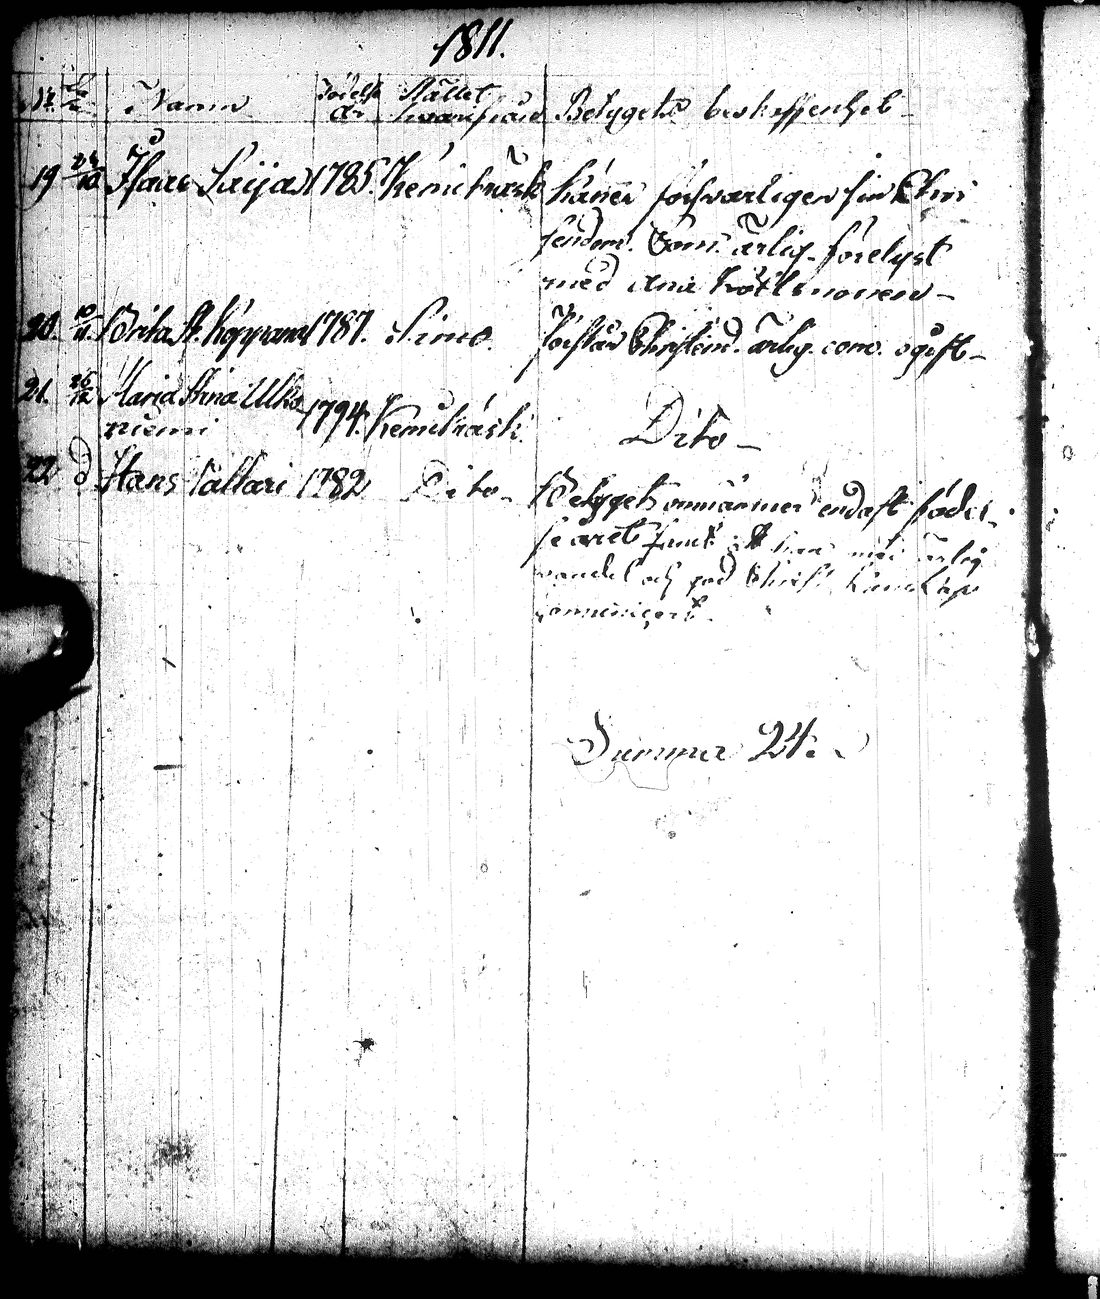 1811.
No Namn Födelse år Stället hvarifrån Betygets beskaffenhet
19 24/10 Isaac Saija 1785. Kemiträsk känner försvarligen sin Chri
stendom. Com. ärlig. förelyst
med
20. 10/11. Brita St. 1787. Simo. Förstår Christend. ärlig. com. ogift
21. 26/12 Maria Stina Ulko
niemi 1794. Kemiträsk. Dito
22 d Hans Tallari 1782 Dito Betyget endast födel
se året
vandel och god Christ. kunskap
Summa 24.